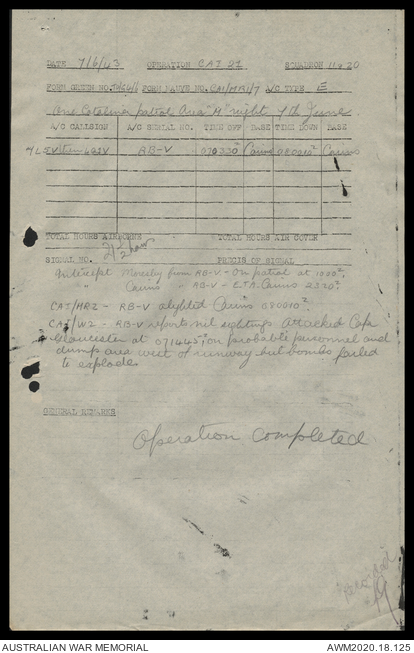 DATE 7/6/43 OPERATION CAI 21 SQUADRON 11 & 20
FORM GREEN NO. FORM MAUVE NO. CAI/MR1/7 A/C TYPE E
One Catalina patrol Area "M" night 7th June
A/C CALLSIGN A/C SERIAL NO. TIME OFF BASE TIME DOWN BASE
RB-V 070330Z Cairns 080010Z Cairns
TOTAL HOURS AIRBORNE TOTAL HOURS AIR COVER
SIGNAL NO. PRECIS OF SIGNAL
Intercept Moresby from RB-V - On patrol at
" Cairns " RB-V - E.T.A. Cairns 2330Z
CAI/MR2 - RB-V alighted Cairns 080010Z
CAI/W2 - RB-V reports nil sightings Attacked Cape
Gloucester at 071445Z on probable personnel and
dump area west of runway but bombs failed
to explode.
GENERAL REMARKS
Operation Completed
AUSTRALIAN WAR MEMORIAL AWM2020.18.125